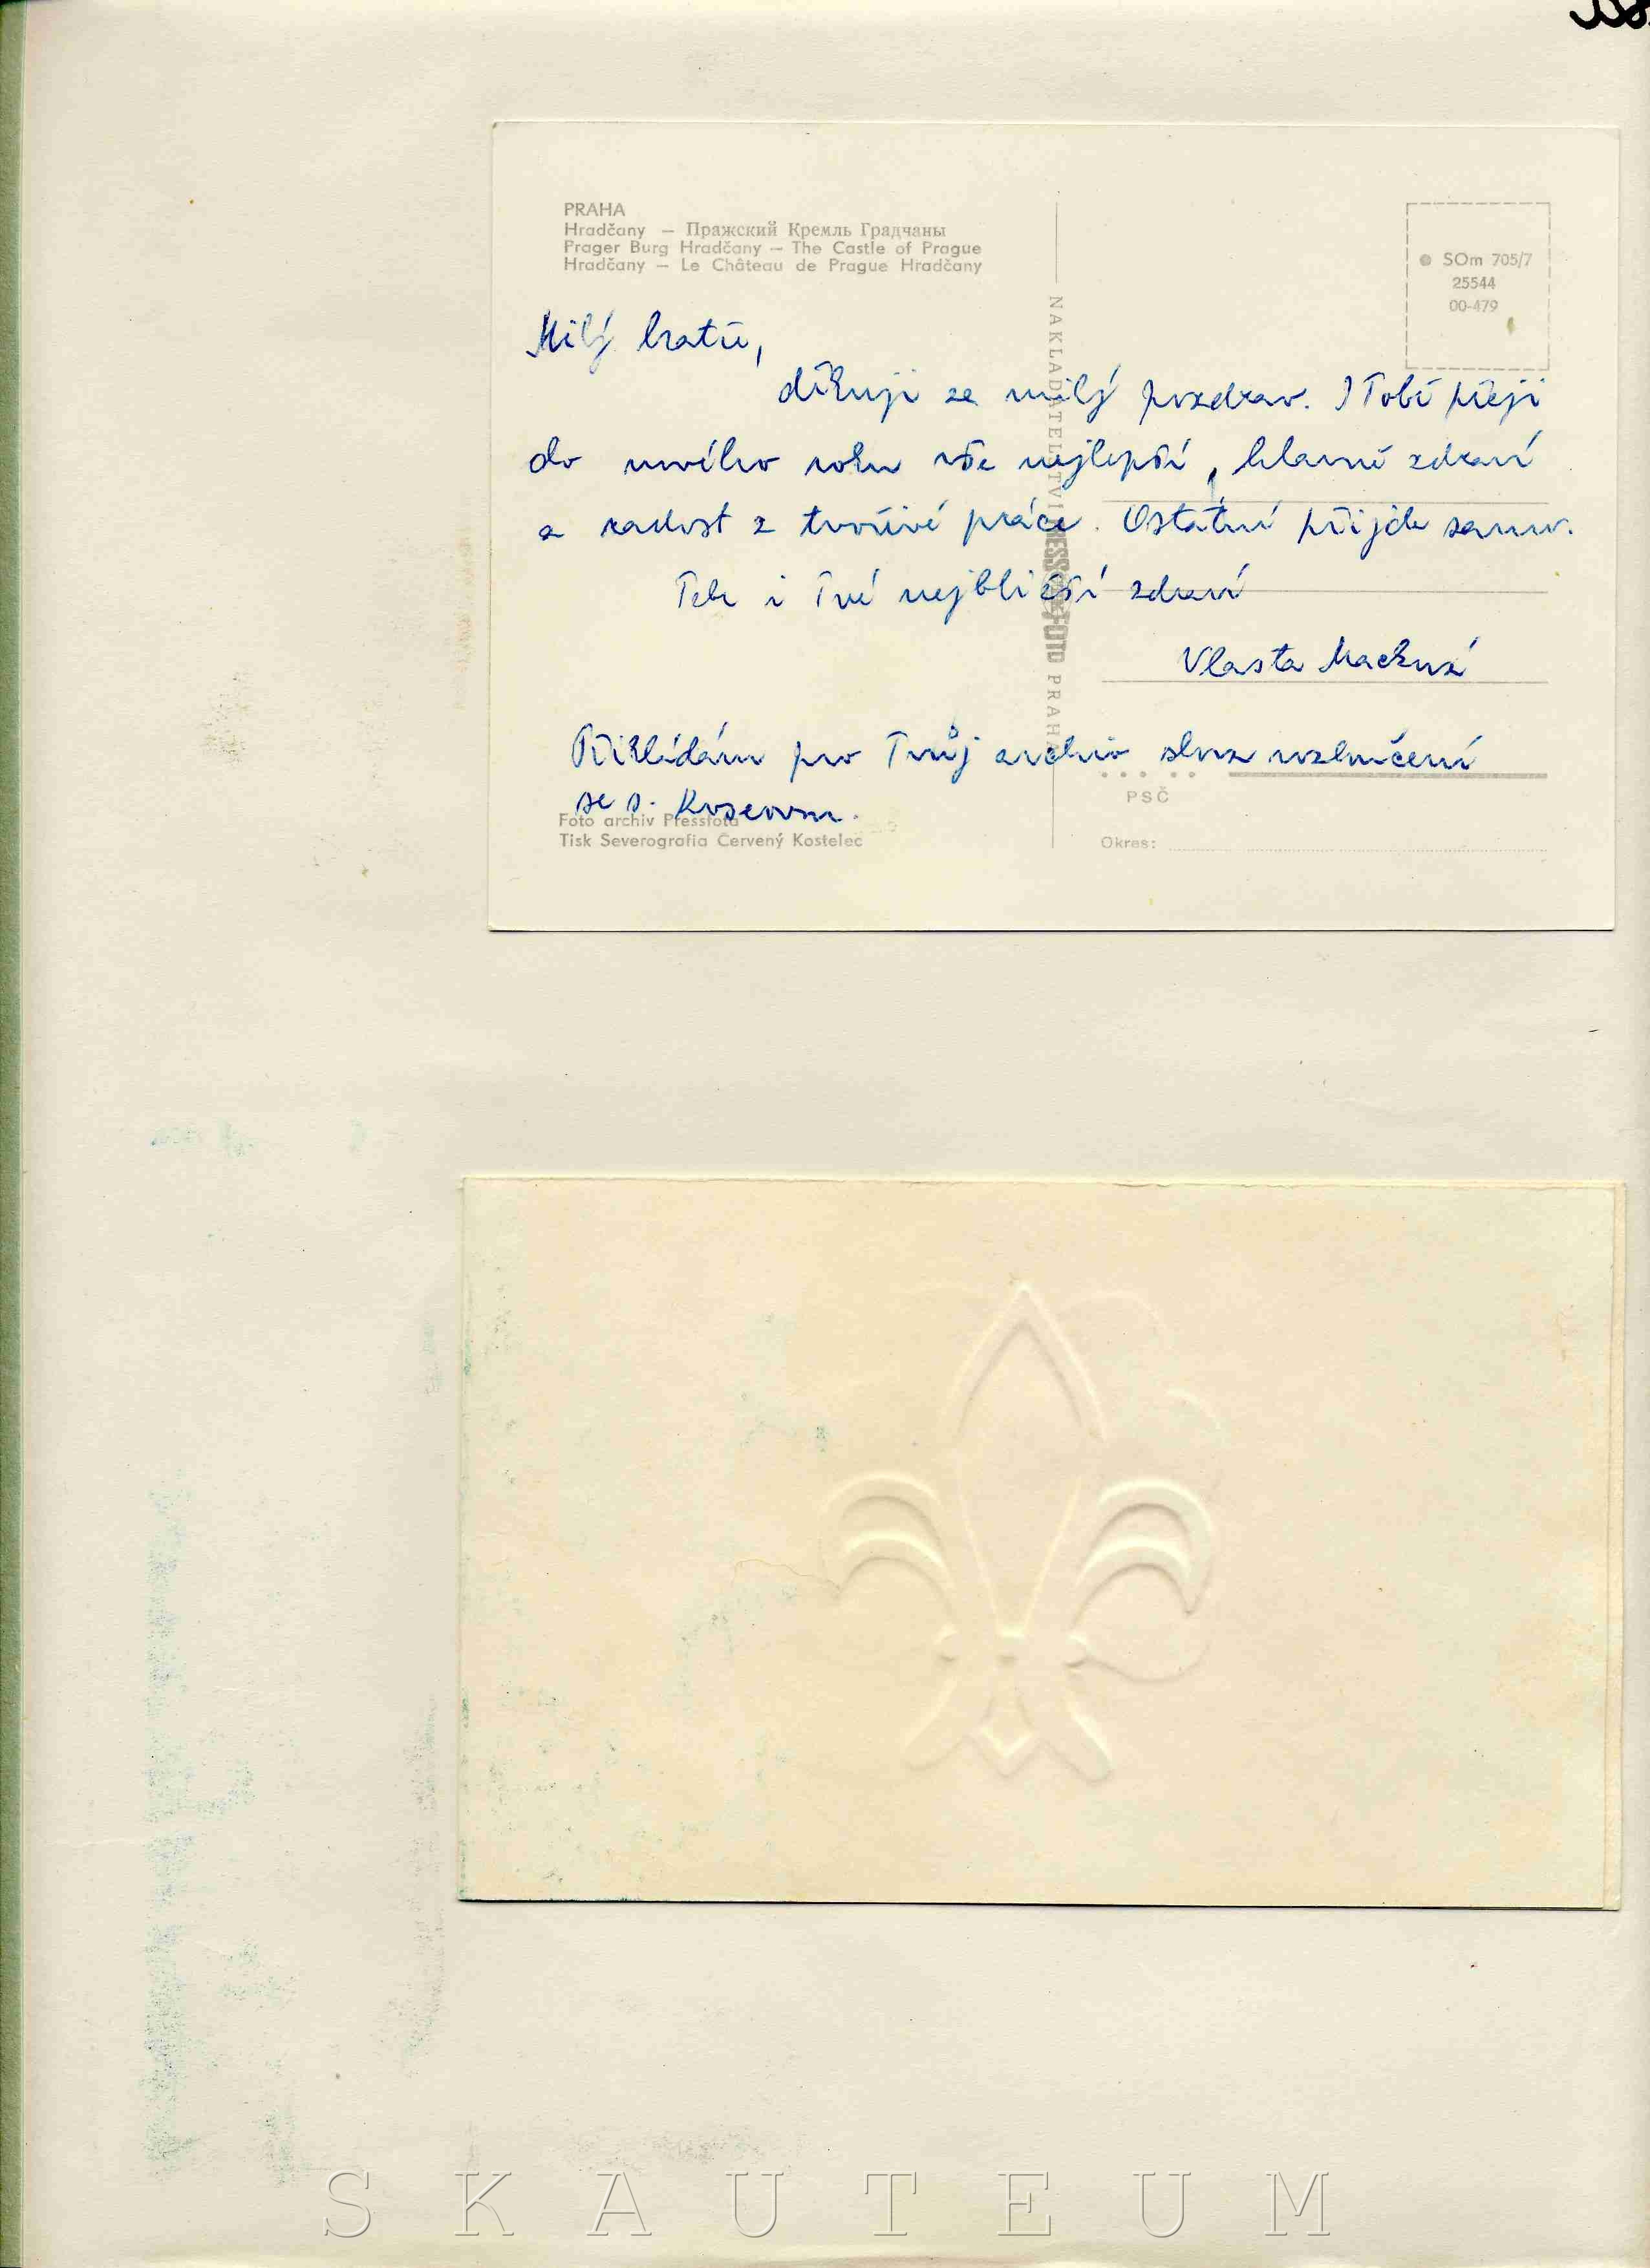 PRAHA
Hradčany — Пражский Кремль Градчаны
Prager Burg Hradčany — The Castle of Prague
Hradčany — Le Château de Prague Hradčany
SOm 705/7
25544
00-479
Milý bratře,
děkuji za milý pozdrav. I Tobě přeji
do nového roku vše nejlepší, hlavně zdraví
a radost z tvořivé práce. Ostatní přijde samo.
Tebe i Tvé nejbližší zdraví
Vlasta Macková
Přikládám pro Tvůj archiv slova rozloučení
se s.
NAKLADATELSTVÍ PRESSFOTO PRAHA
PSČ
Foto archiv Pressfoto
Tisk Severografia Červený Kostelec
Okres:
SKAUTEUM